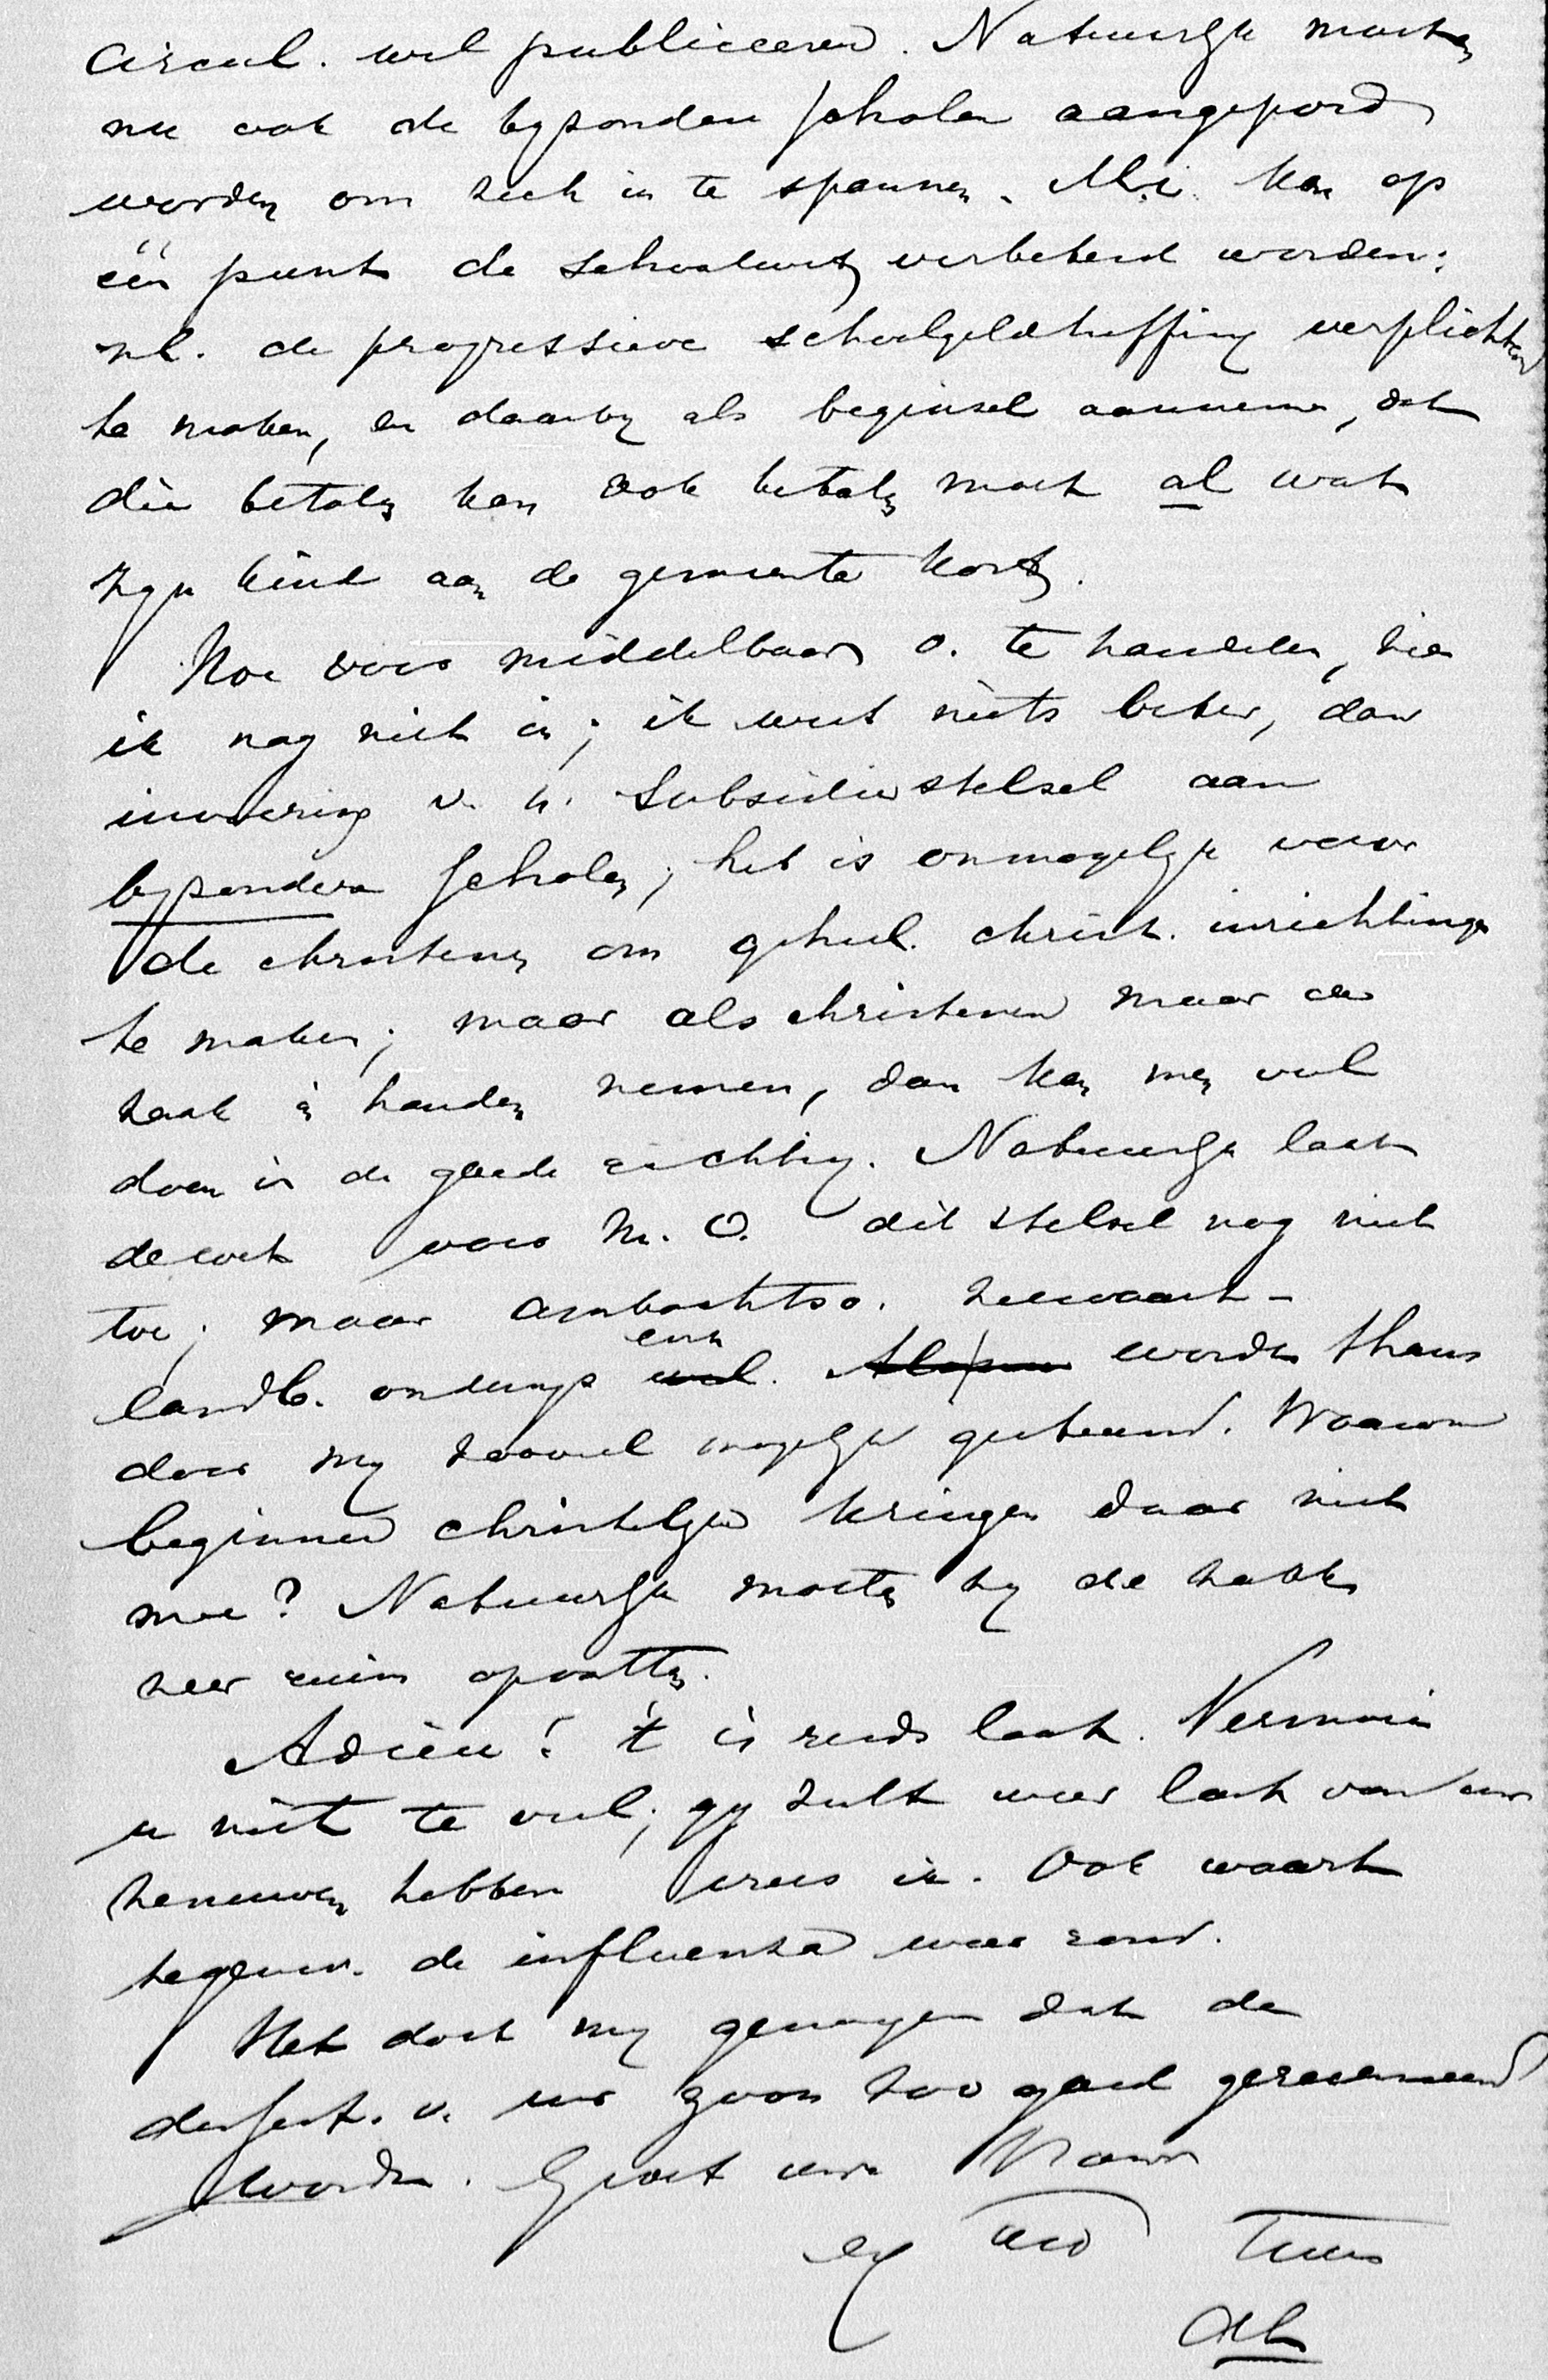 Circul. wil publiceeren. Natuurlijk moeten
nu ook de byzondere scholen aangepord
worden om zich in te spannen. M.i. kan op
één punt de schoolwet verbeterd worden:
nl. de progressieve schoolgeldheffing verplichtend
te maken, en daarby als beginsel aannemen, dat
die betalen kan ook betalen moet al wat
zyn kind aan de gemeente kost.
Hoe voor middelbaar o. te handelen, zie
ik nog niet in; ik weet niets beter, dan
invoering v. h. Subsidiestelsel aan
byzondere scholen; het is onmogelyk voor
de christenen om geheel christ. inrichtingen
te maken; maar als christenen maar de
zaak in handen nemen, dan kan men veel
doen in de goede richting. Natuurlyk laat
de wet voor M.O. dit stelsel nog niet
toe; maar ambachtso. zeevaart-
landb. onderwys enz. worden thans
door my zooveel mogelyk gesteund. Waarom
beginnen christelyke kringen daar niet
mee? Natuurlyk moeten zy de zaken
zeer ruim opvatten.
Adieu! 't is reeds laat. Vermoei
u niet te veel; gy zult weer last van uw
zenuwen hebben vrees ik. Ook waart
tegenw. de influenza weer rond.
Het doet my genoegen dat de
dissert. v. uw zoon zoo goed gerecenseerd
worden. Groet uwe Vrouw
en tuus